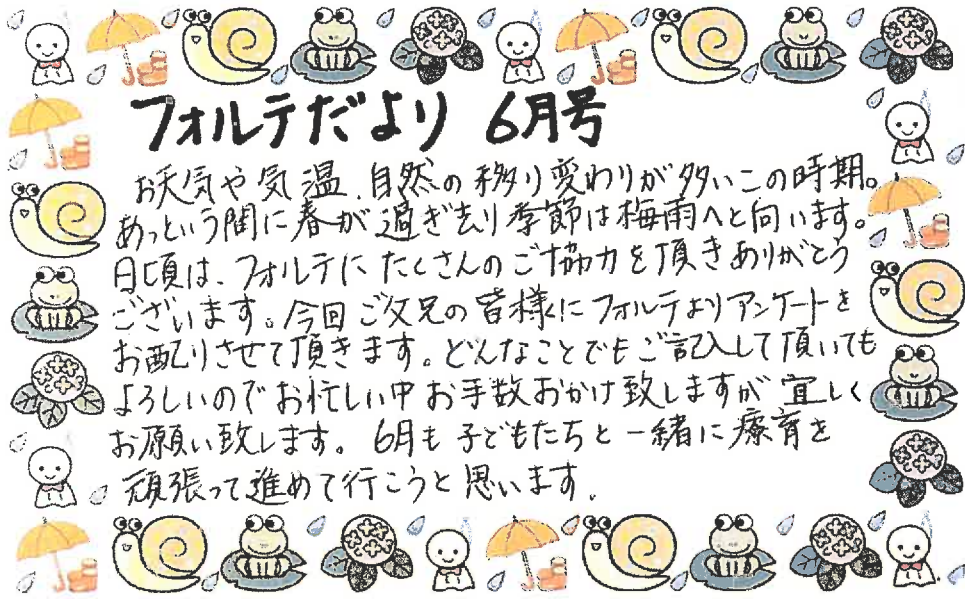 フォルテだより 6月号
お天気や気温、自然の移り変わりが多いこの時期。
あっという間に春が過ぎ去り季節は梅雨へと向います。
日頃は、フォルテにたくさんのご協力を頂きありがとう
ございます。今回ご父兄の皆様にフォルテよりアンケートを
お配りさせて頂きます。どんなことでもご記入して頂いても
よろしいのでお忙しい中お手数おかけ致しますが宜しく
お願い致します。6月も子どもたちと一緒に療育を
頑張って進めて行こうと思います.